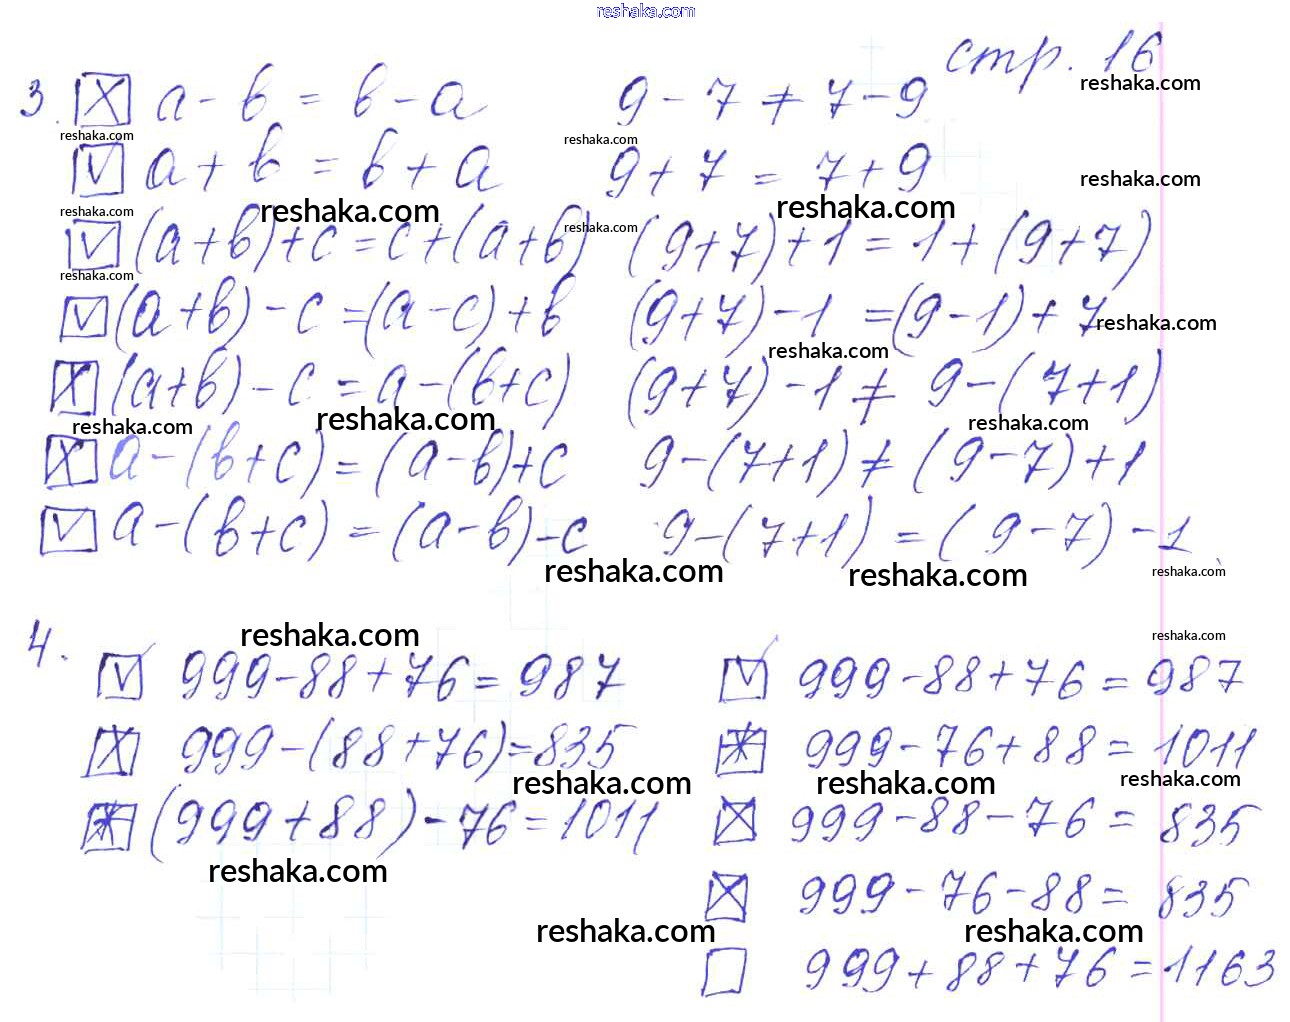 reshaka.com
стр. 16
reshaka.com
3. ☒ a - b = b - a 9 - 7 ≠ 7 - 9
reshaka.com reshaka.com
☑ a + b = b + a 9 + 7 = 7 + 9
reshaka.com
reshaka.com reshaka.com reshaka.com reshaka.com
☑ (a+b)+c=c+(a+b) (9+7)+1=1+(9+7)
reshaka.com
☑ (a+b)-c=(a-c)+b (9+7)-1=(9-1)+7
reshaka.com
reshaka.com
☒ (a+b)-c=a-(b+c) (9+7)-1≠9-(7+1)
reshaka.com reshaka.com reshaka.com
☒ a-(b+c)=(a-b)+c 9-(7+1)≠(9-7)+1
☑ a-(b+c)=(a-b)-c 9-(7+1)=(9-7)-1
reshaka.com reshaka.com reshaka.com
reshaka.com reshaka.com
4. ☑ 999-88+76=987 ☑ 999-88+76=987
☒ 999-(88+76)=835 * 999-76+88=1011
reshaka.com reshaka.com reshaka.com
* (999+88)-76=1011 ☒ 999-88-76=835
reshaka.com
☒ 999-76-88=835
reshaka.com reshaka.com
☐ 999+88+76=1163